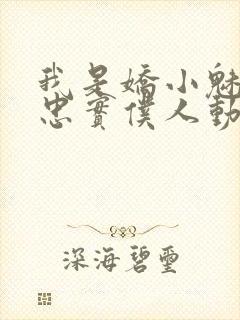 我是嬌小魅
忠實僕人動
深海碧璽